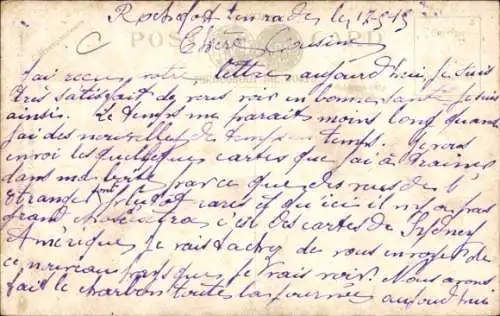 en rade, le 17-5-15
POST
Chère Cousine
J'ai recu votre lettre aujourd'hui, je suis
très satisfait de vous voir en bonne santé je suis
ainsi. Le temps me parait moins long quand
j'ai des nouvelles de temps en temps. Je vous
envoi les quelques cartes que j'ai à traine
dans ma parce que des vues de l'
étranger sont plutot rares et qu'ici il n'y a pas
grand c'est des cartes de Sydney
Amérique, je vais tacher de vous envoyer de
ce nouveau pays que je vais voir. Nous avons
fait le charbon toute la journée aujourd'hui